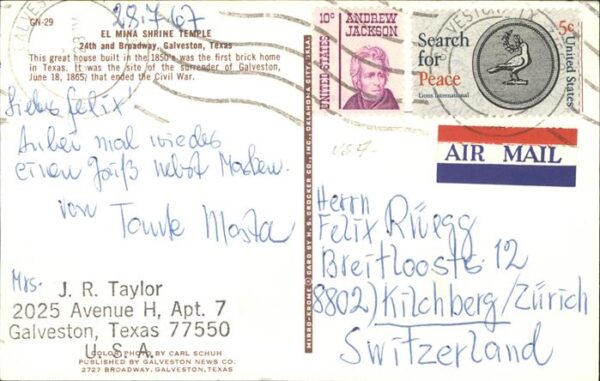 GN-29
28.7.67
EL MINA SHRINE TEMPLE
24th and Broadway, Galveston, Texas
This great house built in the 1850's was the first brick home
in Texas. It was the site of the surrender of Galveston,
June 18, 1865, that ended the Civil War.
Liebes Felix!
wieder
einen Gruß nebst Marken.
von Tante Marta
Mrs.
J. R. Taylor
2025 Avenue H, Apt. 7
Galveston, Texas 77550
U. S. A.
COLOR PHOTO BY CARL SCHUH
PUBLISHED BY GALVESTON NEWS CO.
2727 BROADWAY, GALVESTON, TEXAS
MIRRO-KROME CARD BY H. S. CROCKER CO., INC., OKLAHOMA CITY, OKLA.
10c ANDREW
JACKSON
UNITED STATES
Search
for
Peace
Lions International
5c
United States
AIR MAIL
Herrn
Felix Rüegg
Breitloostr. 12
8802) Kilchberg/Zürich
Switzerland